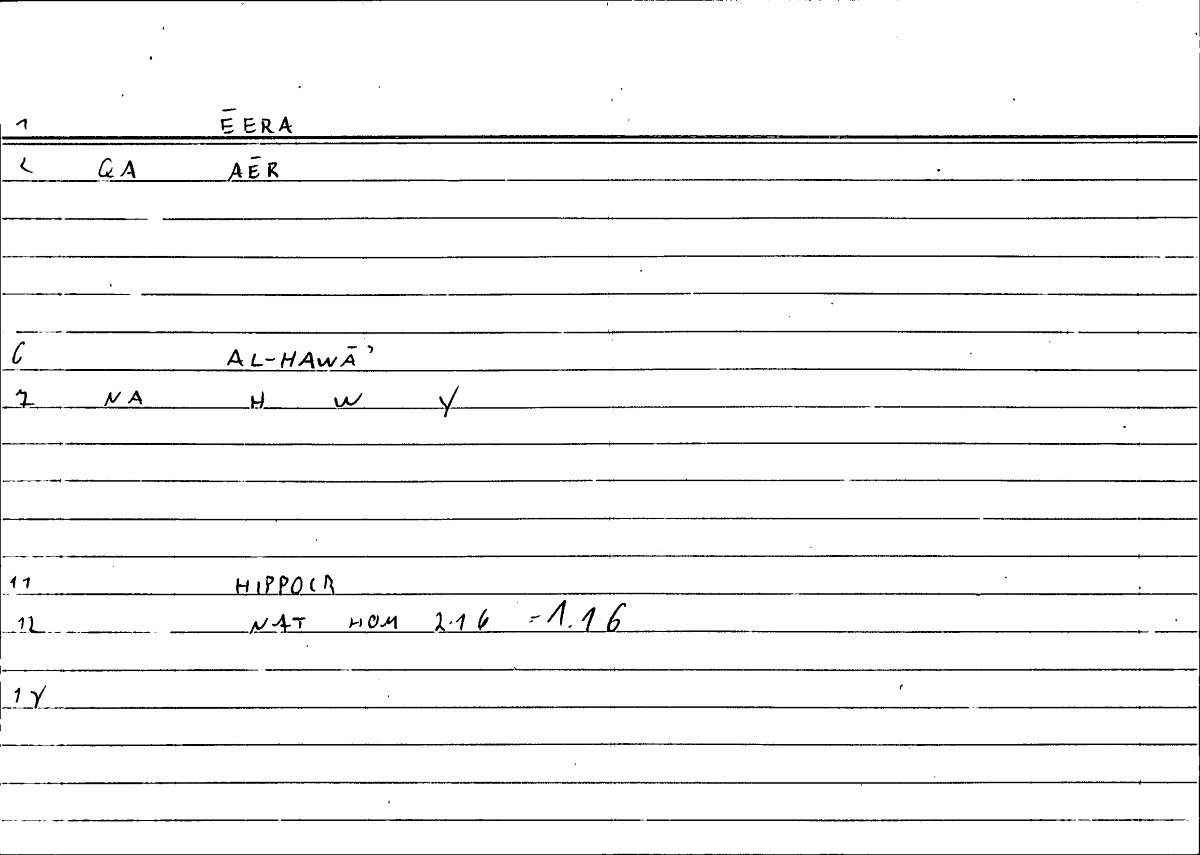 1 ĒERA
2 QA AĒR
6 AL-HAWĀʾ
7 NA H W Y
11 HIPPOCR
12 NAT HOM 2.16 = 1.16
14